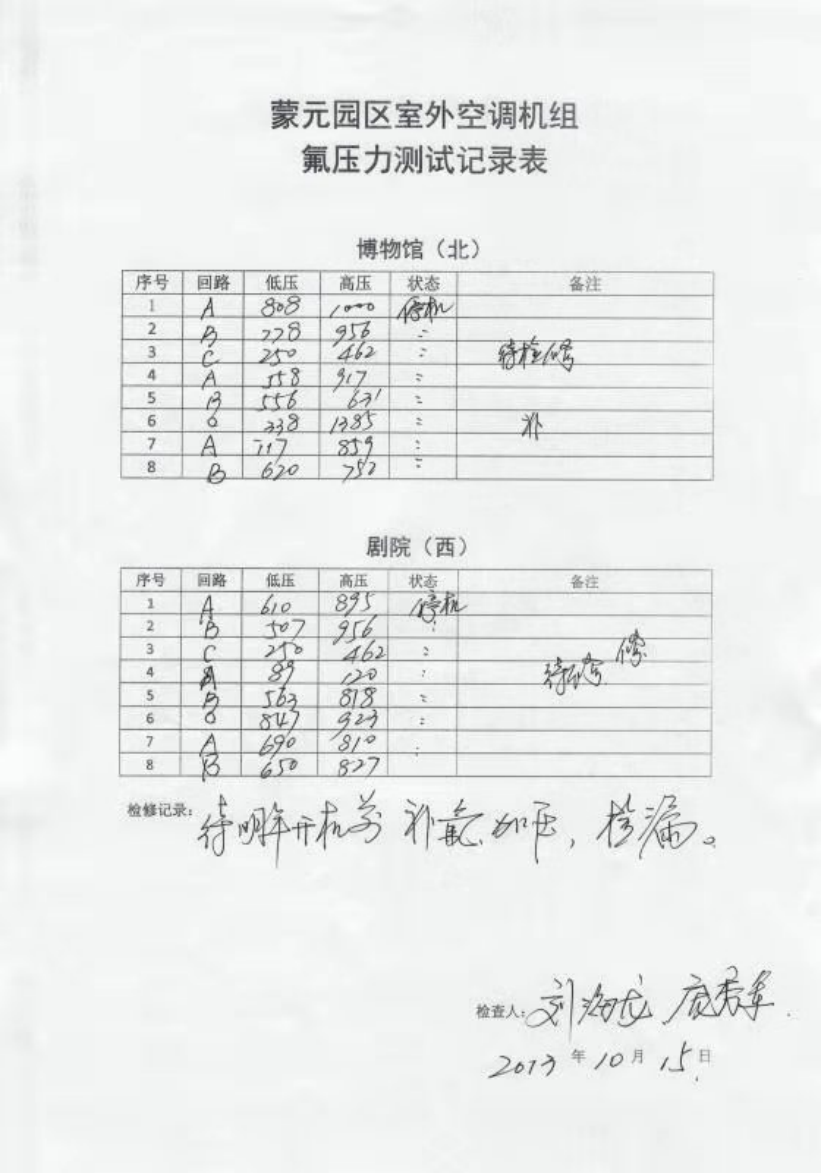 蒙元园区室外空调机组
氟压力测试记录表
博物馆（北）
序号 回路 低压 高压 状态 备注
1 A 808 1000 停机
2 B 778 956 〃
3 C 250 462 〃 待检修
4 A 558 917 〃
5 B 556 631 〃
6 338 1385 〃 补
7 A 717 859 〃
8 B 620 752 〃
剧院（西）
序号 回路 低压 高压 状态 备注
1 A 610 895 停机
2 B 507 956 〃
3 C 250 462 〃 修
4 A 89 120 〃 待
5 B 563 818 〃
6 847 923 〃
7 A 690 810 〃
8 B 650 827
检修记录: 待明年开机前补氟加压，检漏。
检查人: 刘海龙
2013 年 10 月 15 日